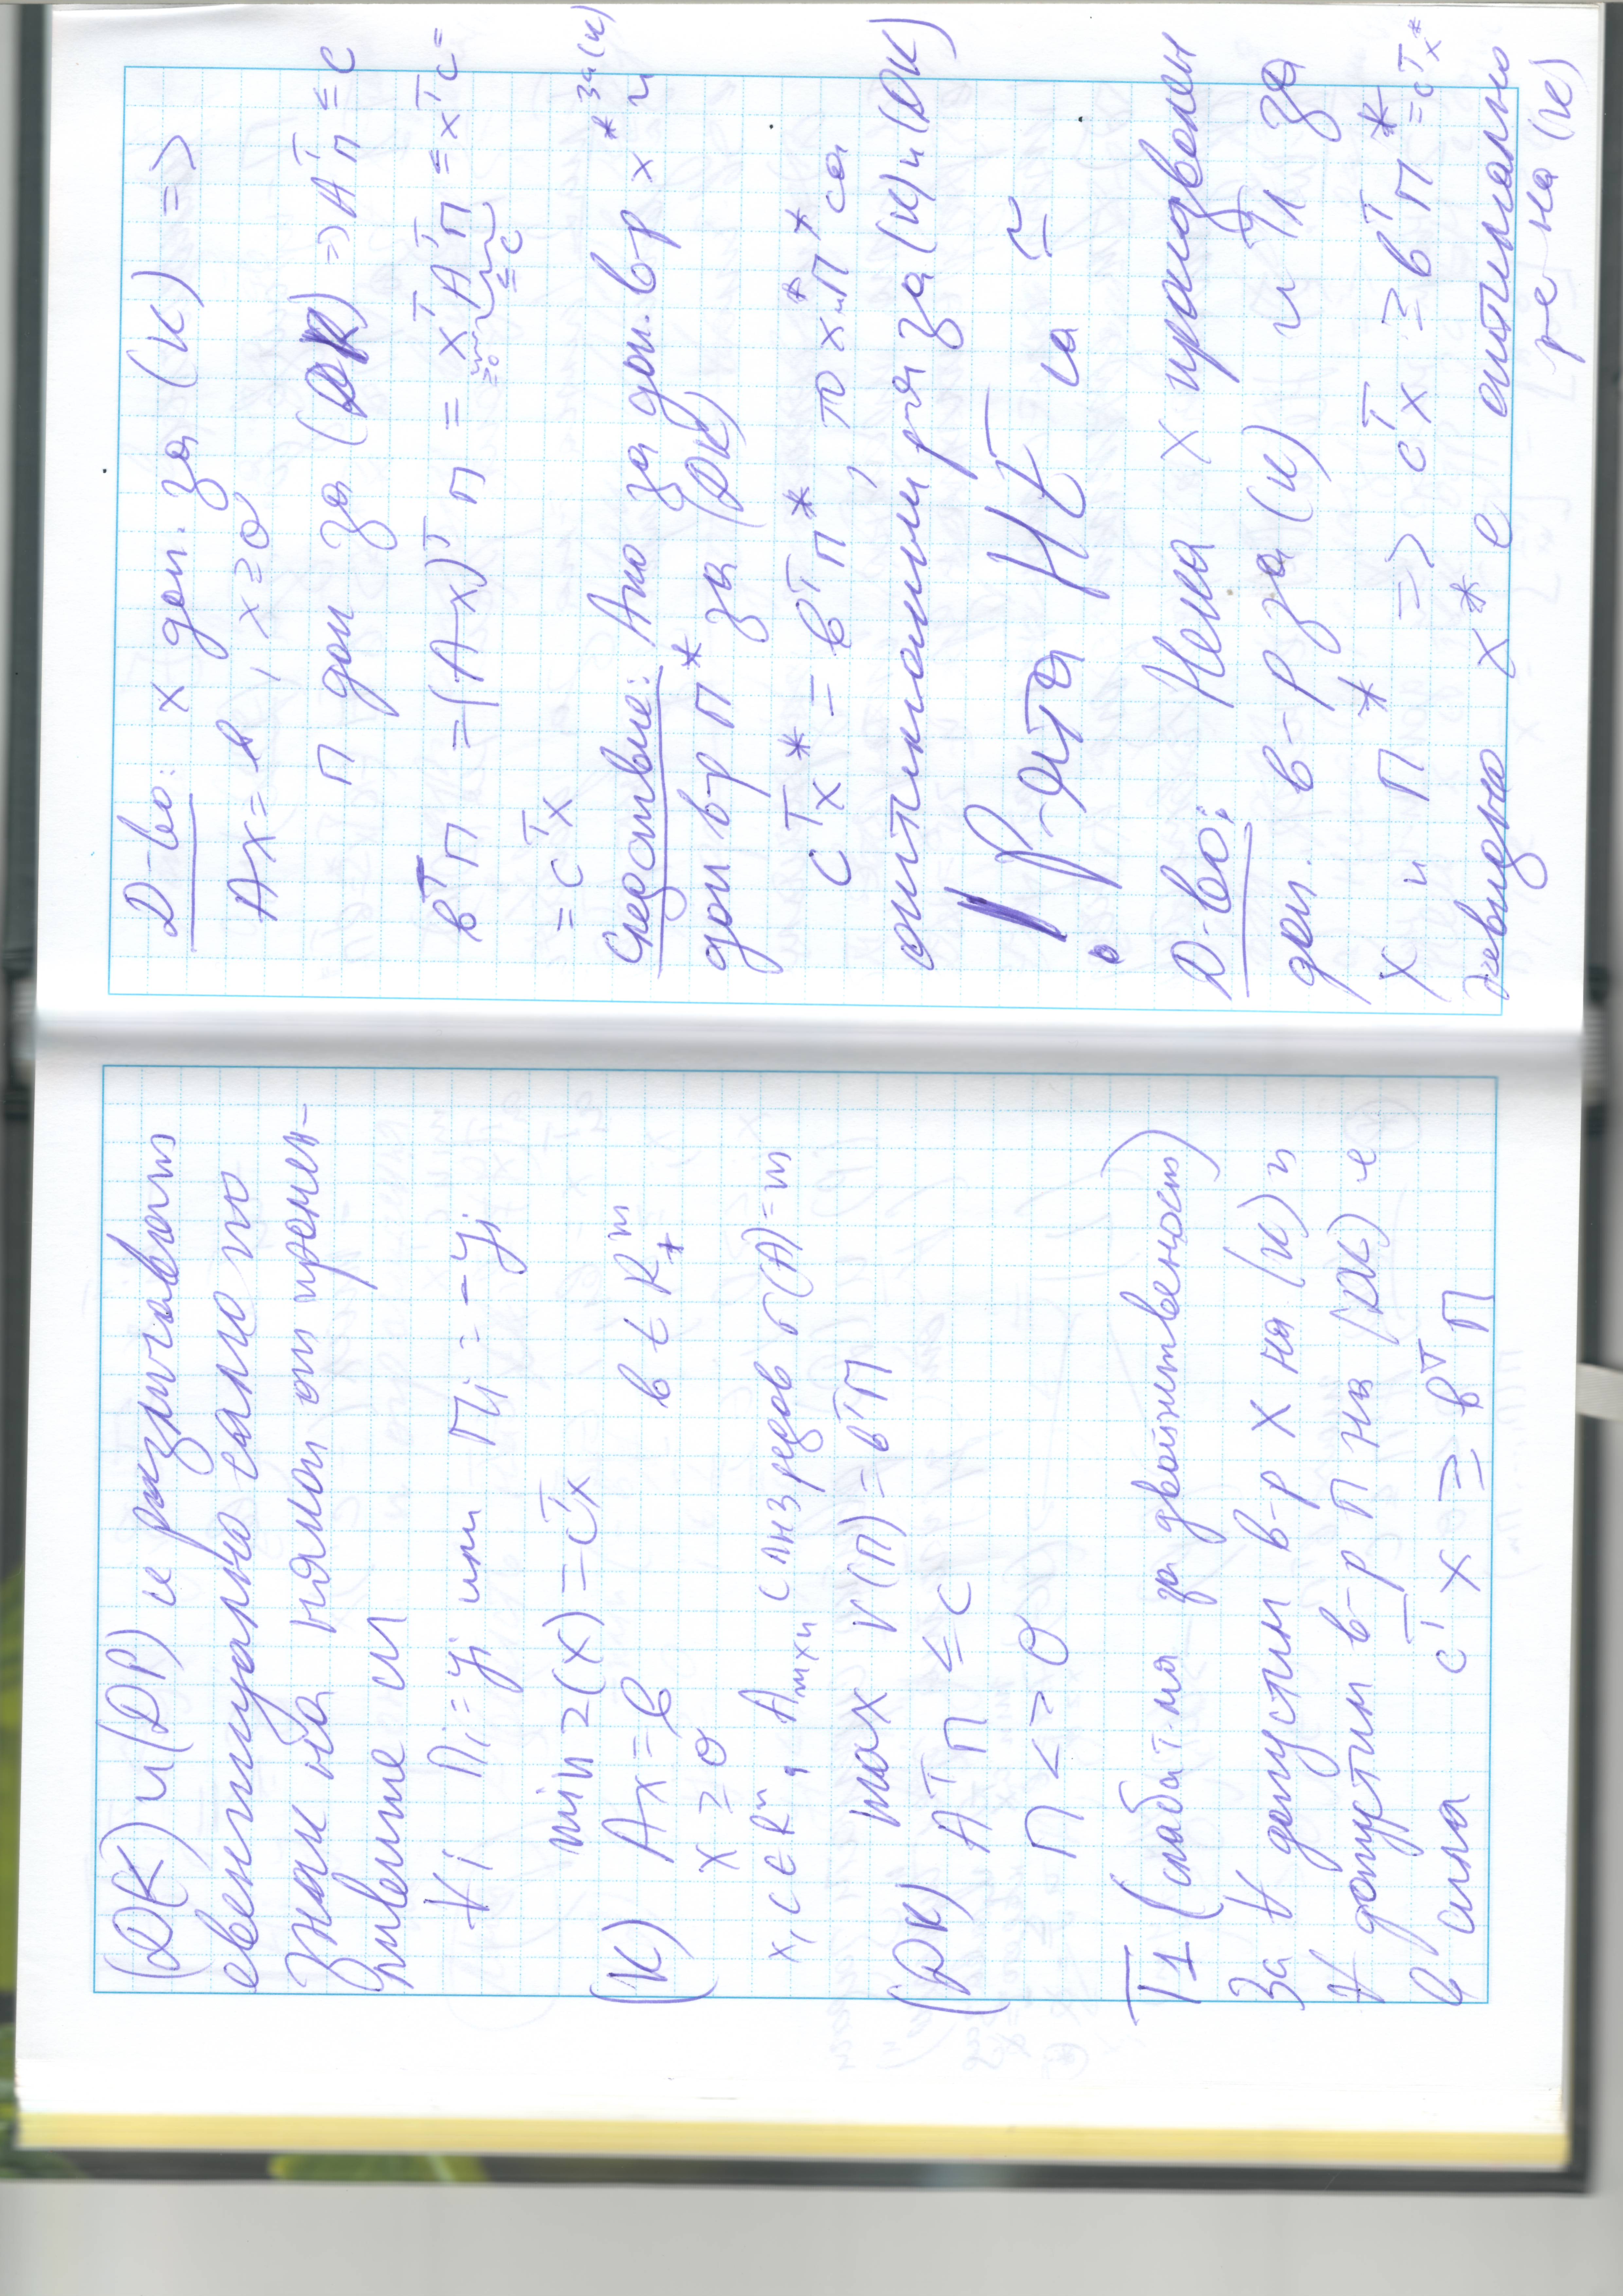 (DK) и (DP) се различават
евентуално само по
знак на някои от промен-
ливите си
∀i Πi = yi или Πi = -yi
min z(x) = cᵀx
(K) Ax = b b ∈ R₊ᵐ
x ≥ 0
x, c ∈ Rⁿ, Aₘₓₙ с ЛНЗ редове r(A) = m
max v(π) = bᵀπ
(DK) Aᵀπ ≤ c
π <=> 0
T1 (слаба т-ма за двойнственост)
За ∀ допустим в-р x на (K) и
∀ допустим в-р π на (DK) е
в сила cᵀx ≥ bᵀπ
D-во: x доп. за (K) =>
Ax = b, x ≥ 0
π доп за (DK) => Aᵀπ ≤ c
bᵀπ = (Ax)ᵀπ = xᵀAᵀπ ≤ xᵀc =
≥0 ≤c
= cᵀx
Следствие: Ако за доп. в-р x* за (K) и
доп в-р π* за (DK)
cᵀx* = bᵀπ*, то x* и π* са
оптимални р-я за (K) и (DK)
! Р-ята НЕ са ≅
D-во: Нека x произволен
доп. в-р за (K) и T1 за
x и π* => cᵀx ≥ bᵀπ* = cᵀx*
Очевидно x* е оптимално
р-е на (K)